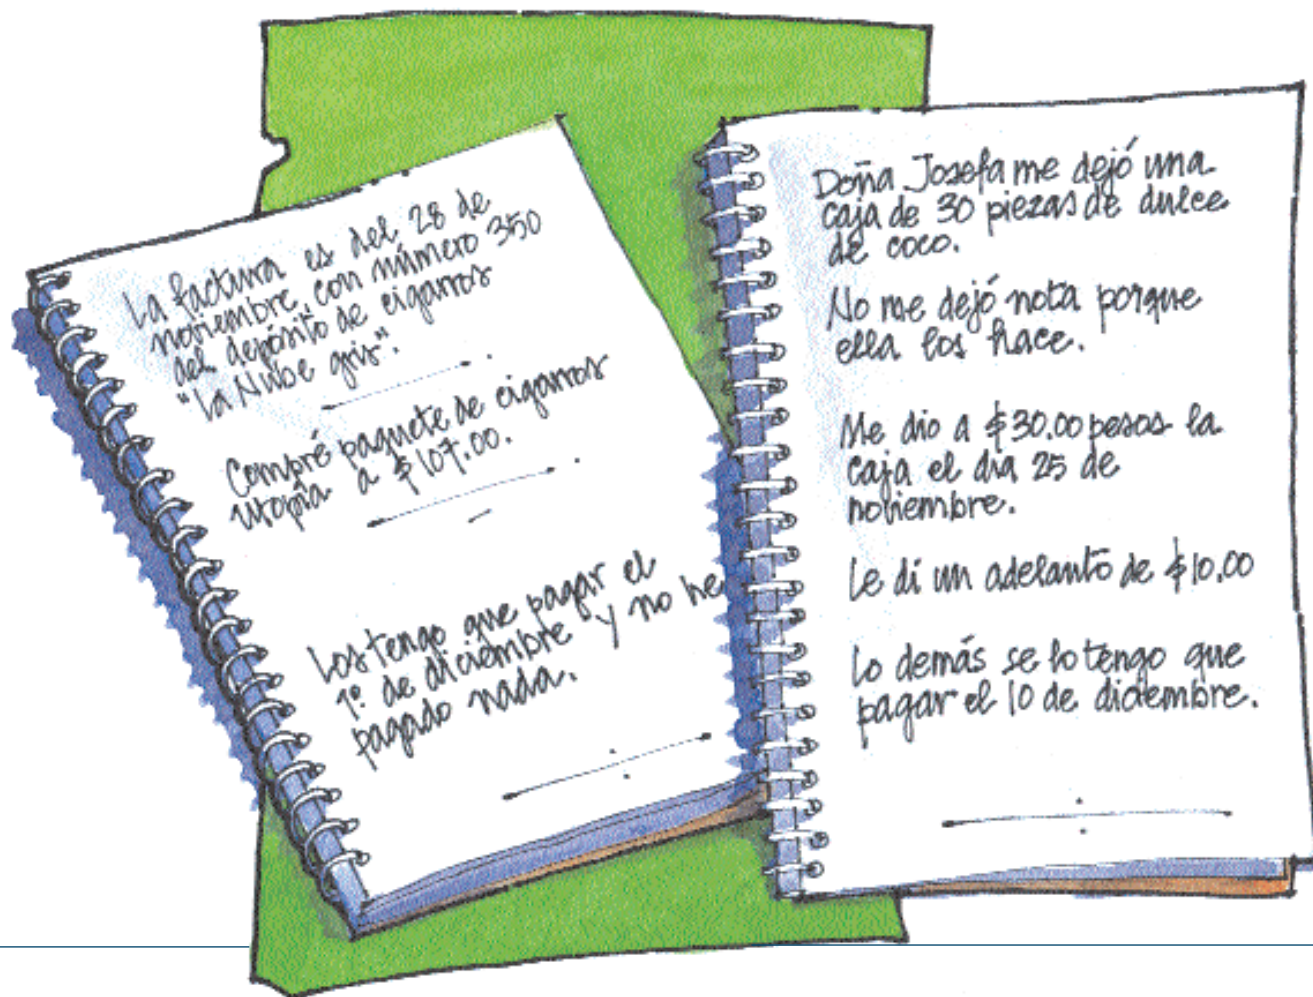 La factura es del 28 de
noviembre, con número 350
del depósito de cigarros
"La Nube gris".
Compré paquete de cigarros
Utopía a $107.00.
Los tengo que pagar el
1º de diciembre y no he
pagado nada.
Doña Josefa me dejó una
caja de 30 piezas de dulce
de coco.
No me dejó nota porque
ella los hace.
Me dio a $30.00 pesos la
caja el día 25 de
noviembre.
Le di un adelanto de $10.00
Lo demás se lo tengo que
pagar el 10 de diciembre.